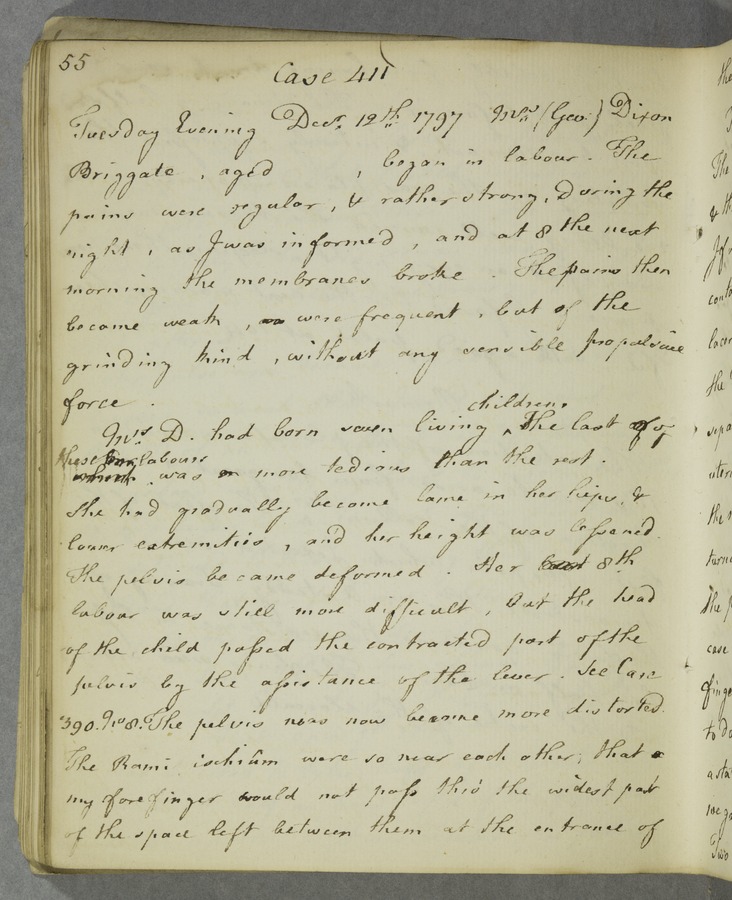 55
Case 411
Tuesday Evening Decr. 12th 1797 Mrs (Geo:) Dixon
Briggate, aged , began in labour. The
pains were regular, & rather strong, During the
night, as I was informed, and at 8 the next
morning the membranes broke. The pains then
became weak, were frequent, but of the
grinding kind, without any sensible propulsive
force.
children.
Mrs D. had born seven living ^ The last of
these labours
was more tedious than the rest.
She had gradually become lame in her hips, &
lower extremities, and her height was lessened.
The pelvis became deformed. Her 8th
labour was still more difficult, But the head
of the child passed the contracted part of the
pelvis by the assistance of the lever. See Case
390. No 8. The pelvis was now become more distorted.
The Rami ischium were so near each other, that
my forefinger would not pass thro' the widest part
of the space left between them at the entrance of